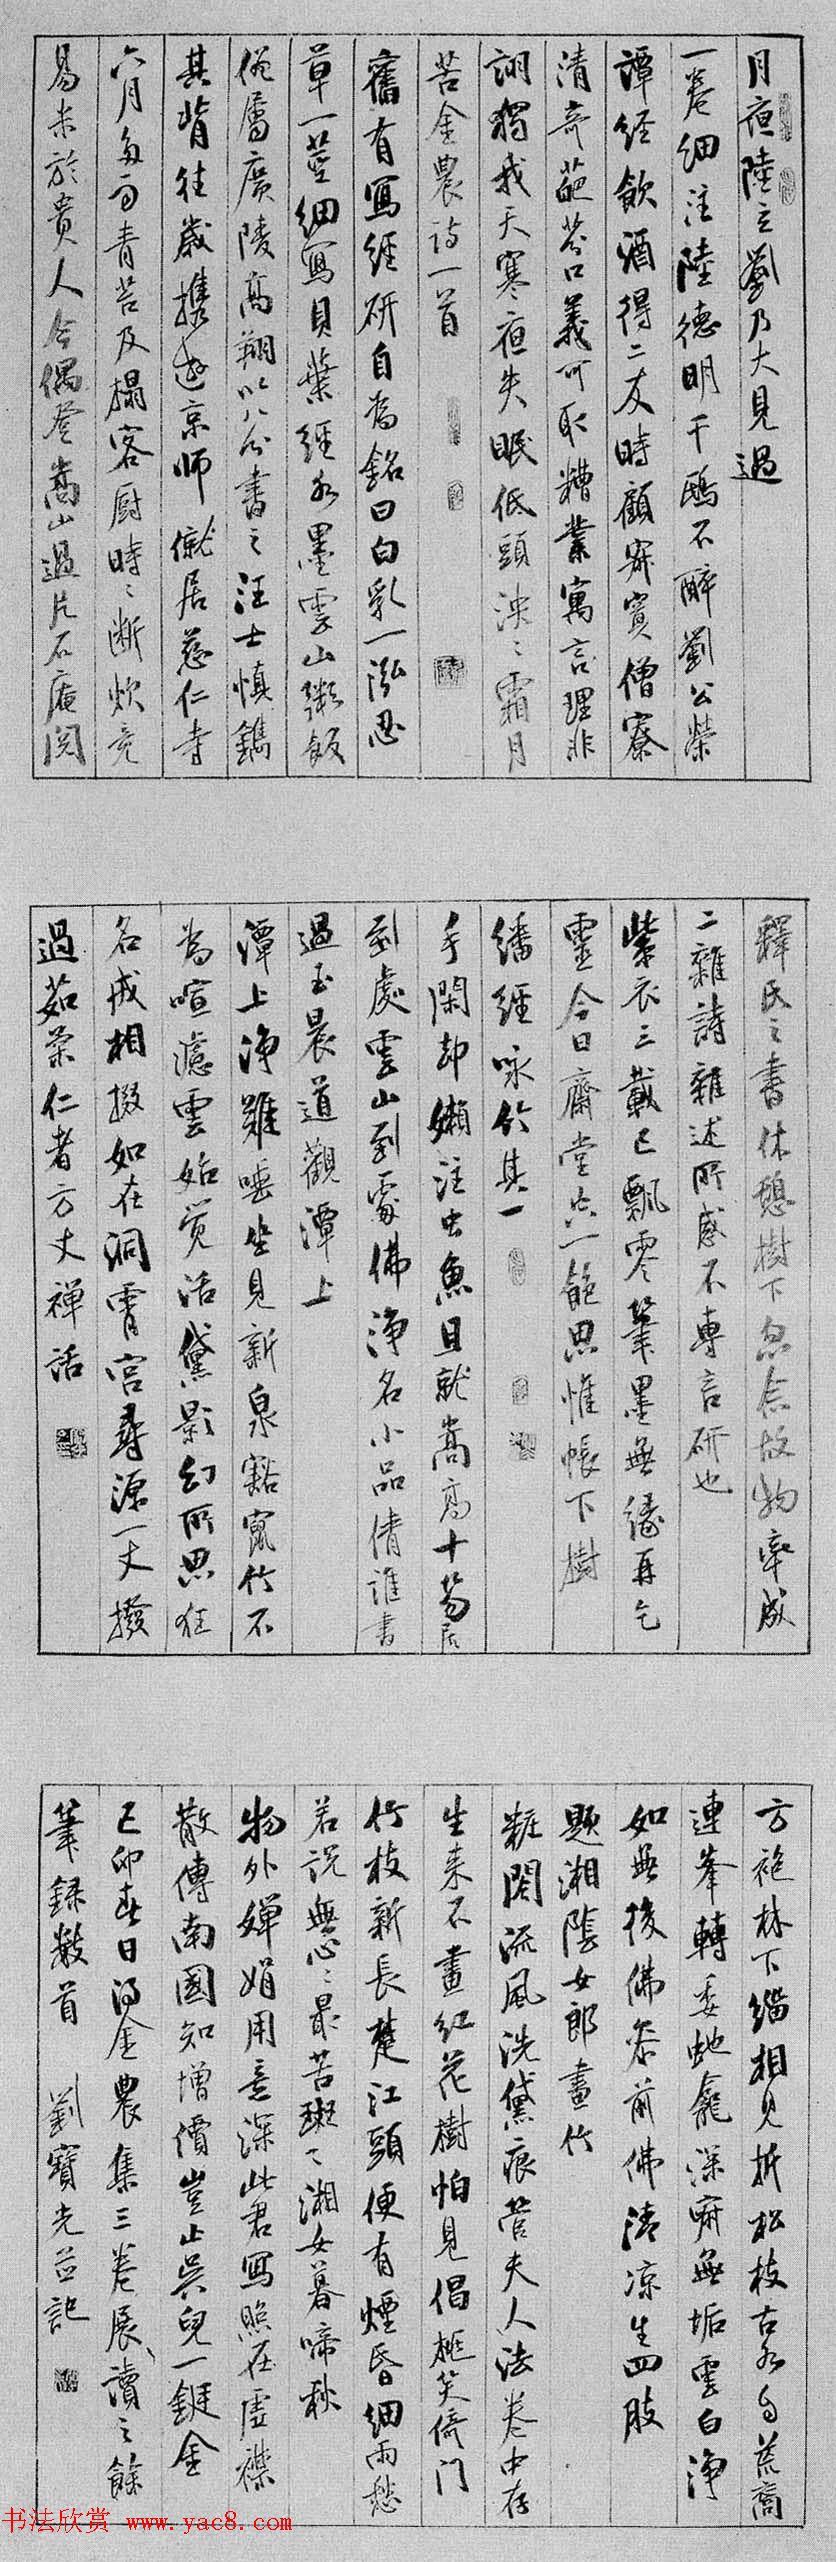 月夜陸立劉乃大見過
一卷細注陸德明千鴟不醉劉公榮
譚經飲酒得二友時顧寂寞僧寮
清奇葩芬口義可取糟業寓言理非
詡獨我天寒夜失眠低頭泱〻霜月
苦金農詩一首
舊有寫經研自為銘曰白乳一泓忍
草一莖細寫貝葉經水墨雲山粥飯
僧屬廣陵高翔以八分書之汪士慎鐫
其背往歲攜遊京師僦居慈仁寺
六月多雨青苔及榻客厨時〻斷炊竟
易米於貴人今偶登嵩山過片石庵閱
釋氏之書休憩樹下忽念故物率成
二雜詩雜述所感不專言研也
紫衣三載已飄零筆墨無緣再乞
靈今日齋堂共一飽思惟帳下樹
繙經咏竹其一
手閑却嬾注虫魚且就嵩高十笏居
到處雲山到處佛淨名小品倩誰書
過玉晨道觀潭上
潭上淨難唾坐見新泉豁寬竹不
為喧濾雲始覺活黛影幻所思狂
名戒相掇如在洞霄宮尋源一丈撥
過茹荼仁者方丈禪話
方袍林下緇相見折松枝古水白荒裔
連峯轉委虵龕深窗無垢雲白淨
如無後佛参前佛清凉生四肢
題湘陰女郎畫竹
粧閣流風洗黛痕菅夫人法卷中存
生來不畫紅花樹怕見倡桃笑倚门
竹枝新長楚江頭便有煙昏細雨愁
若說無心〻最苦斑〻湘女暮啼秋
物外嬋娟用意深此君寫照在虛襟
散傳南國知增價豈止吳兒一鋌金
己卯春日得金農集三卷展讀之餘
筆録數首 劉寶光並記
书法欣赏 www.yac8.com